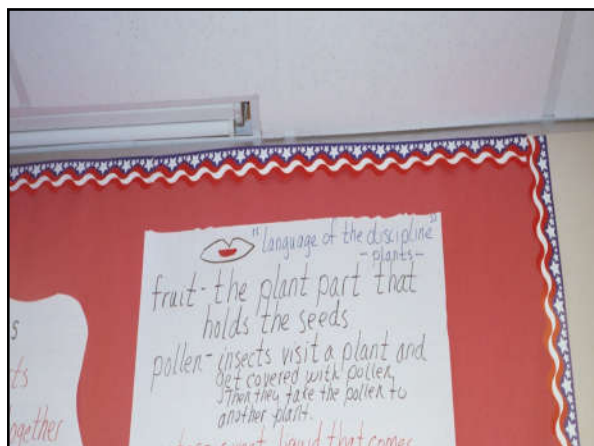 "language of the discipline"
-plants-
fruit- the plant part that
holds the seeds
pollen- insects visit a plant and
get covered with pollen,
then they take the pollen to
another plant.
sweet liquid that comes
s
ts
ogether